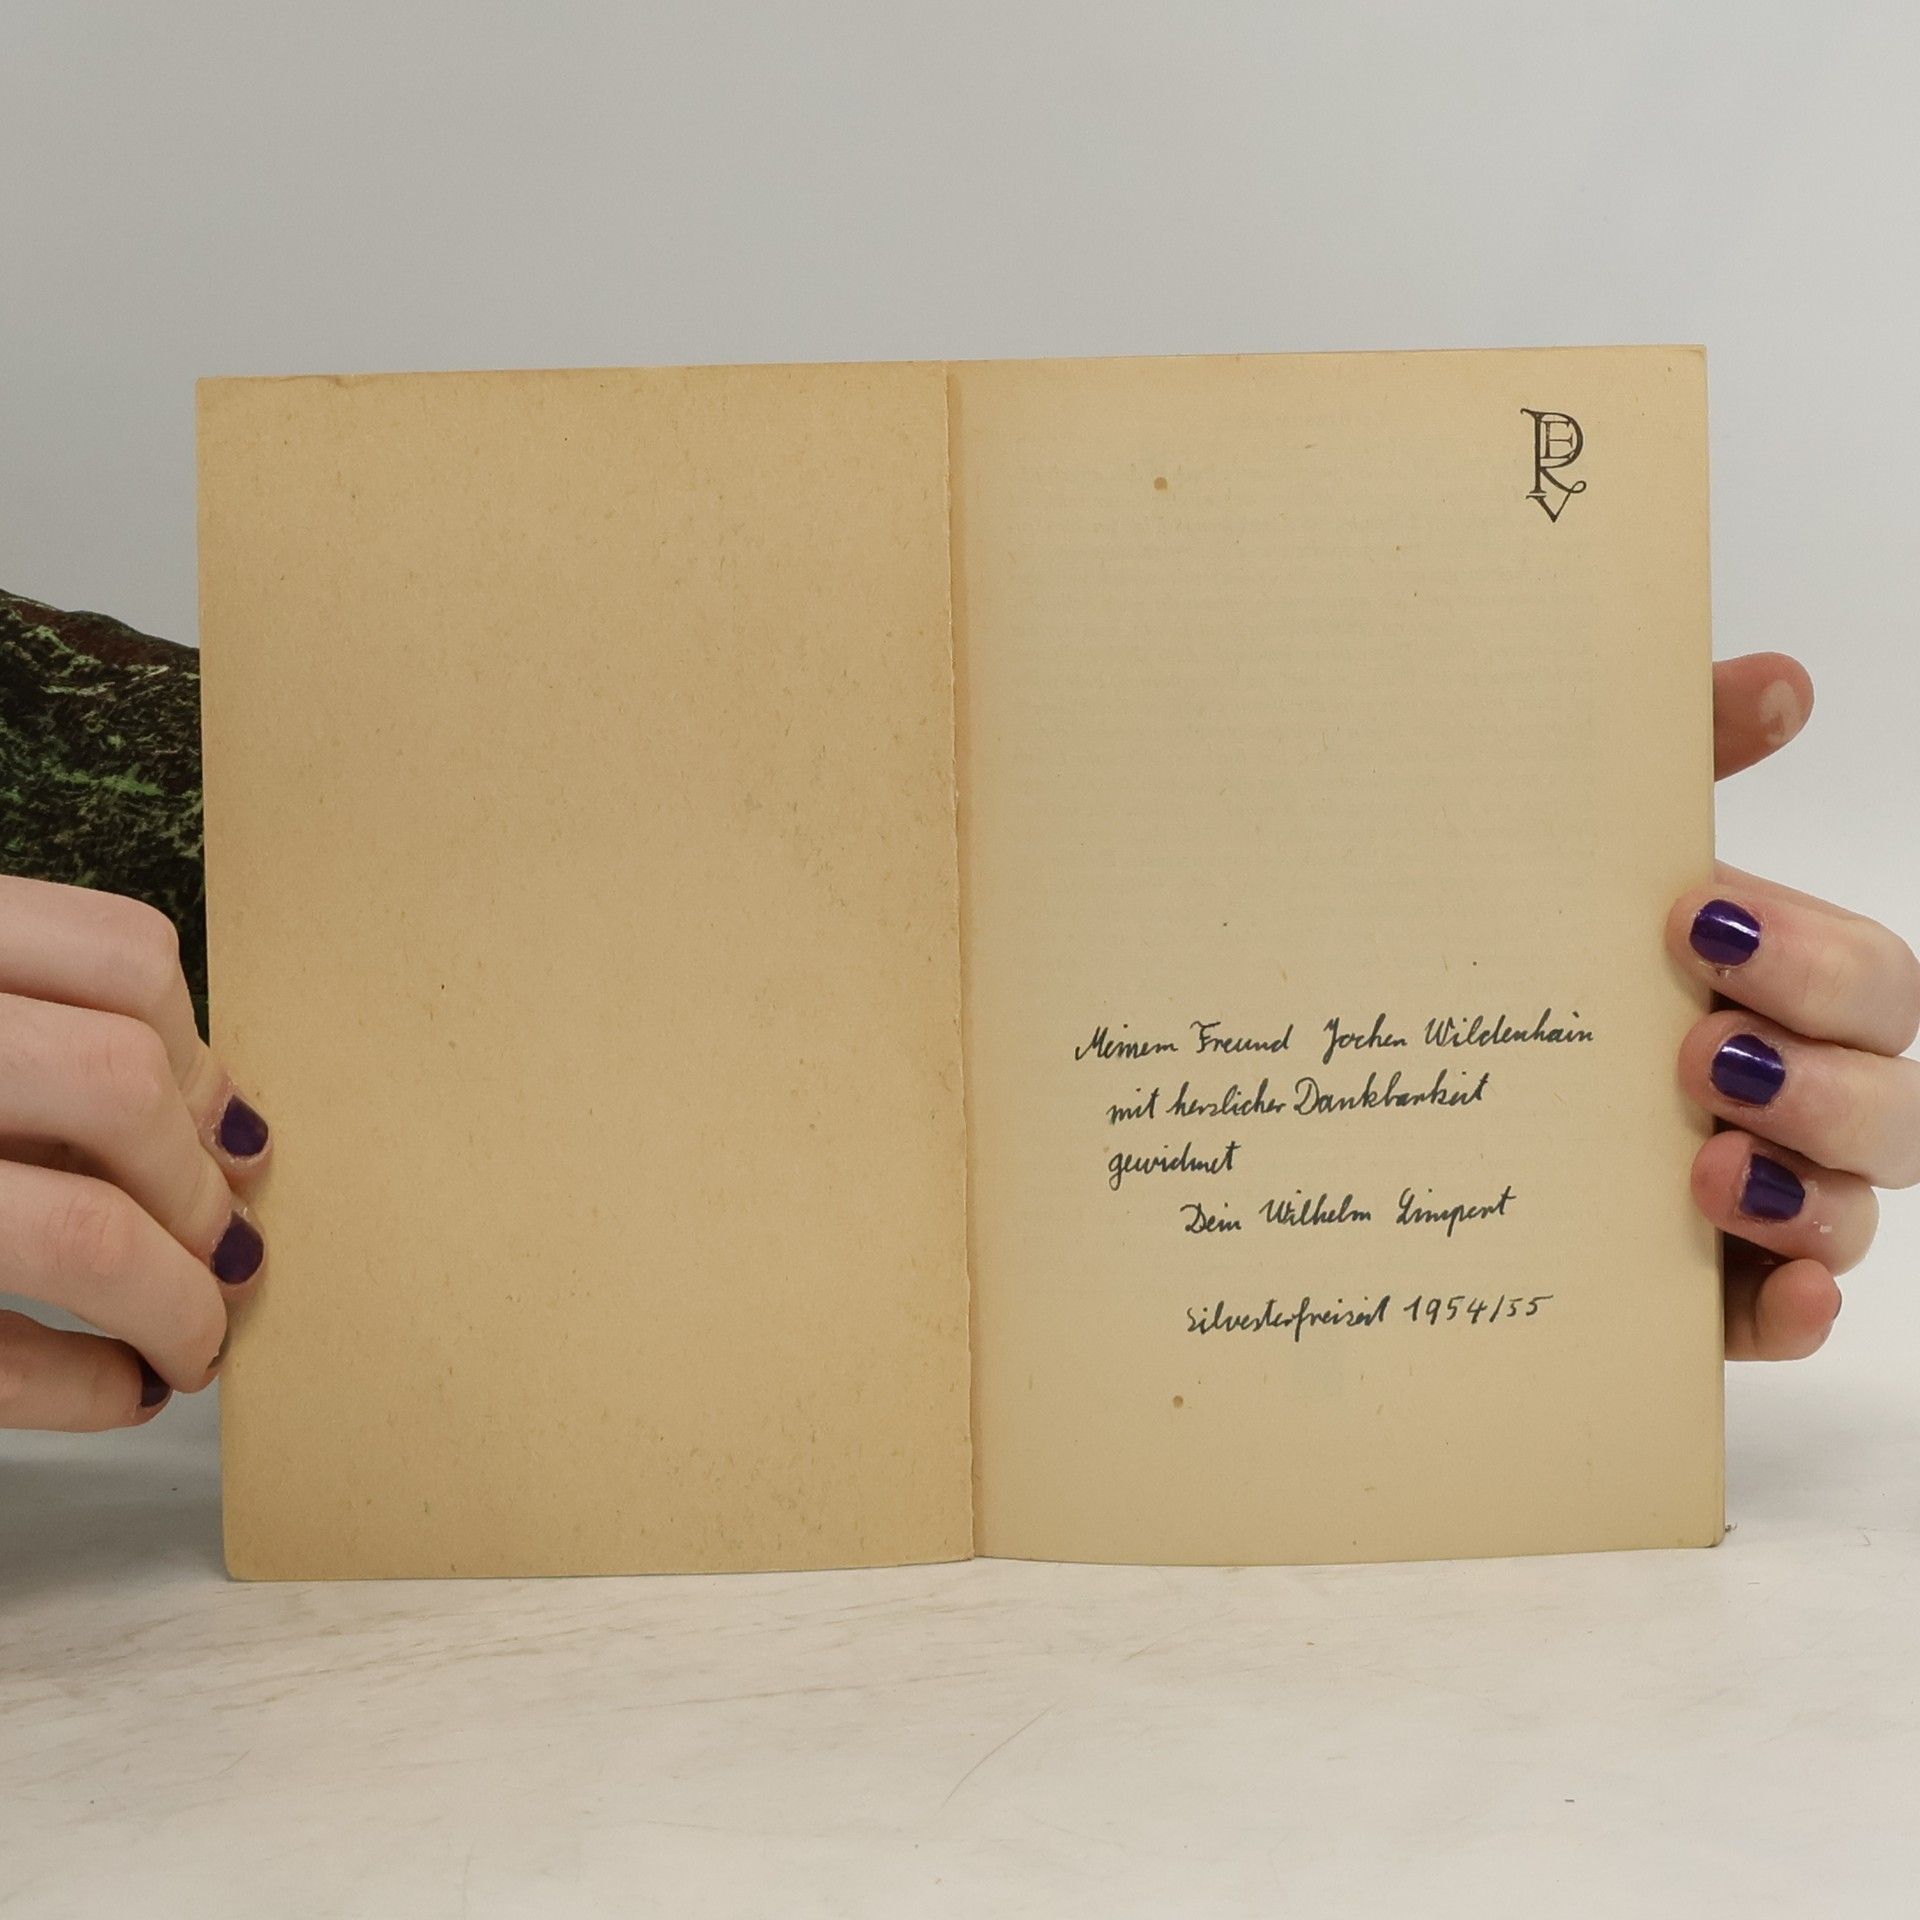 PEV
Meinem Freund Jochen Wildenhain
mit herzlicher Dankbarkeit
gewidmet
Dein Wilhelm Limpert
Silvesterfreizeit 1954/55